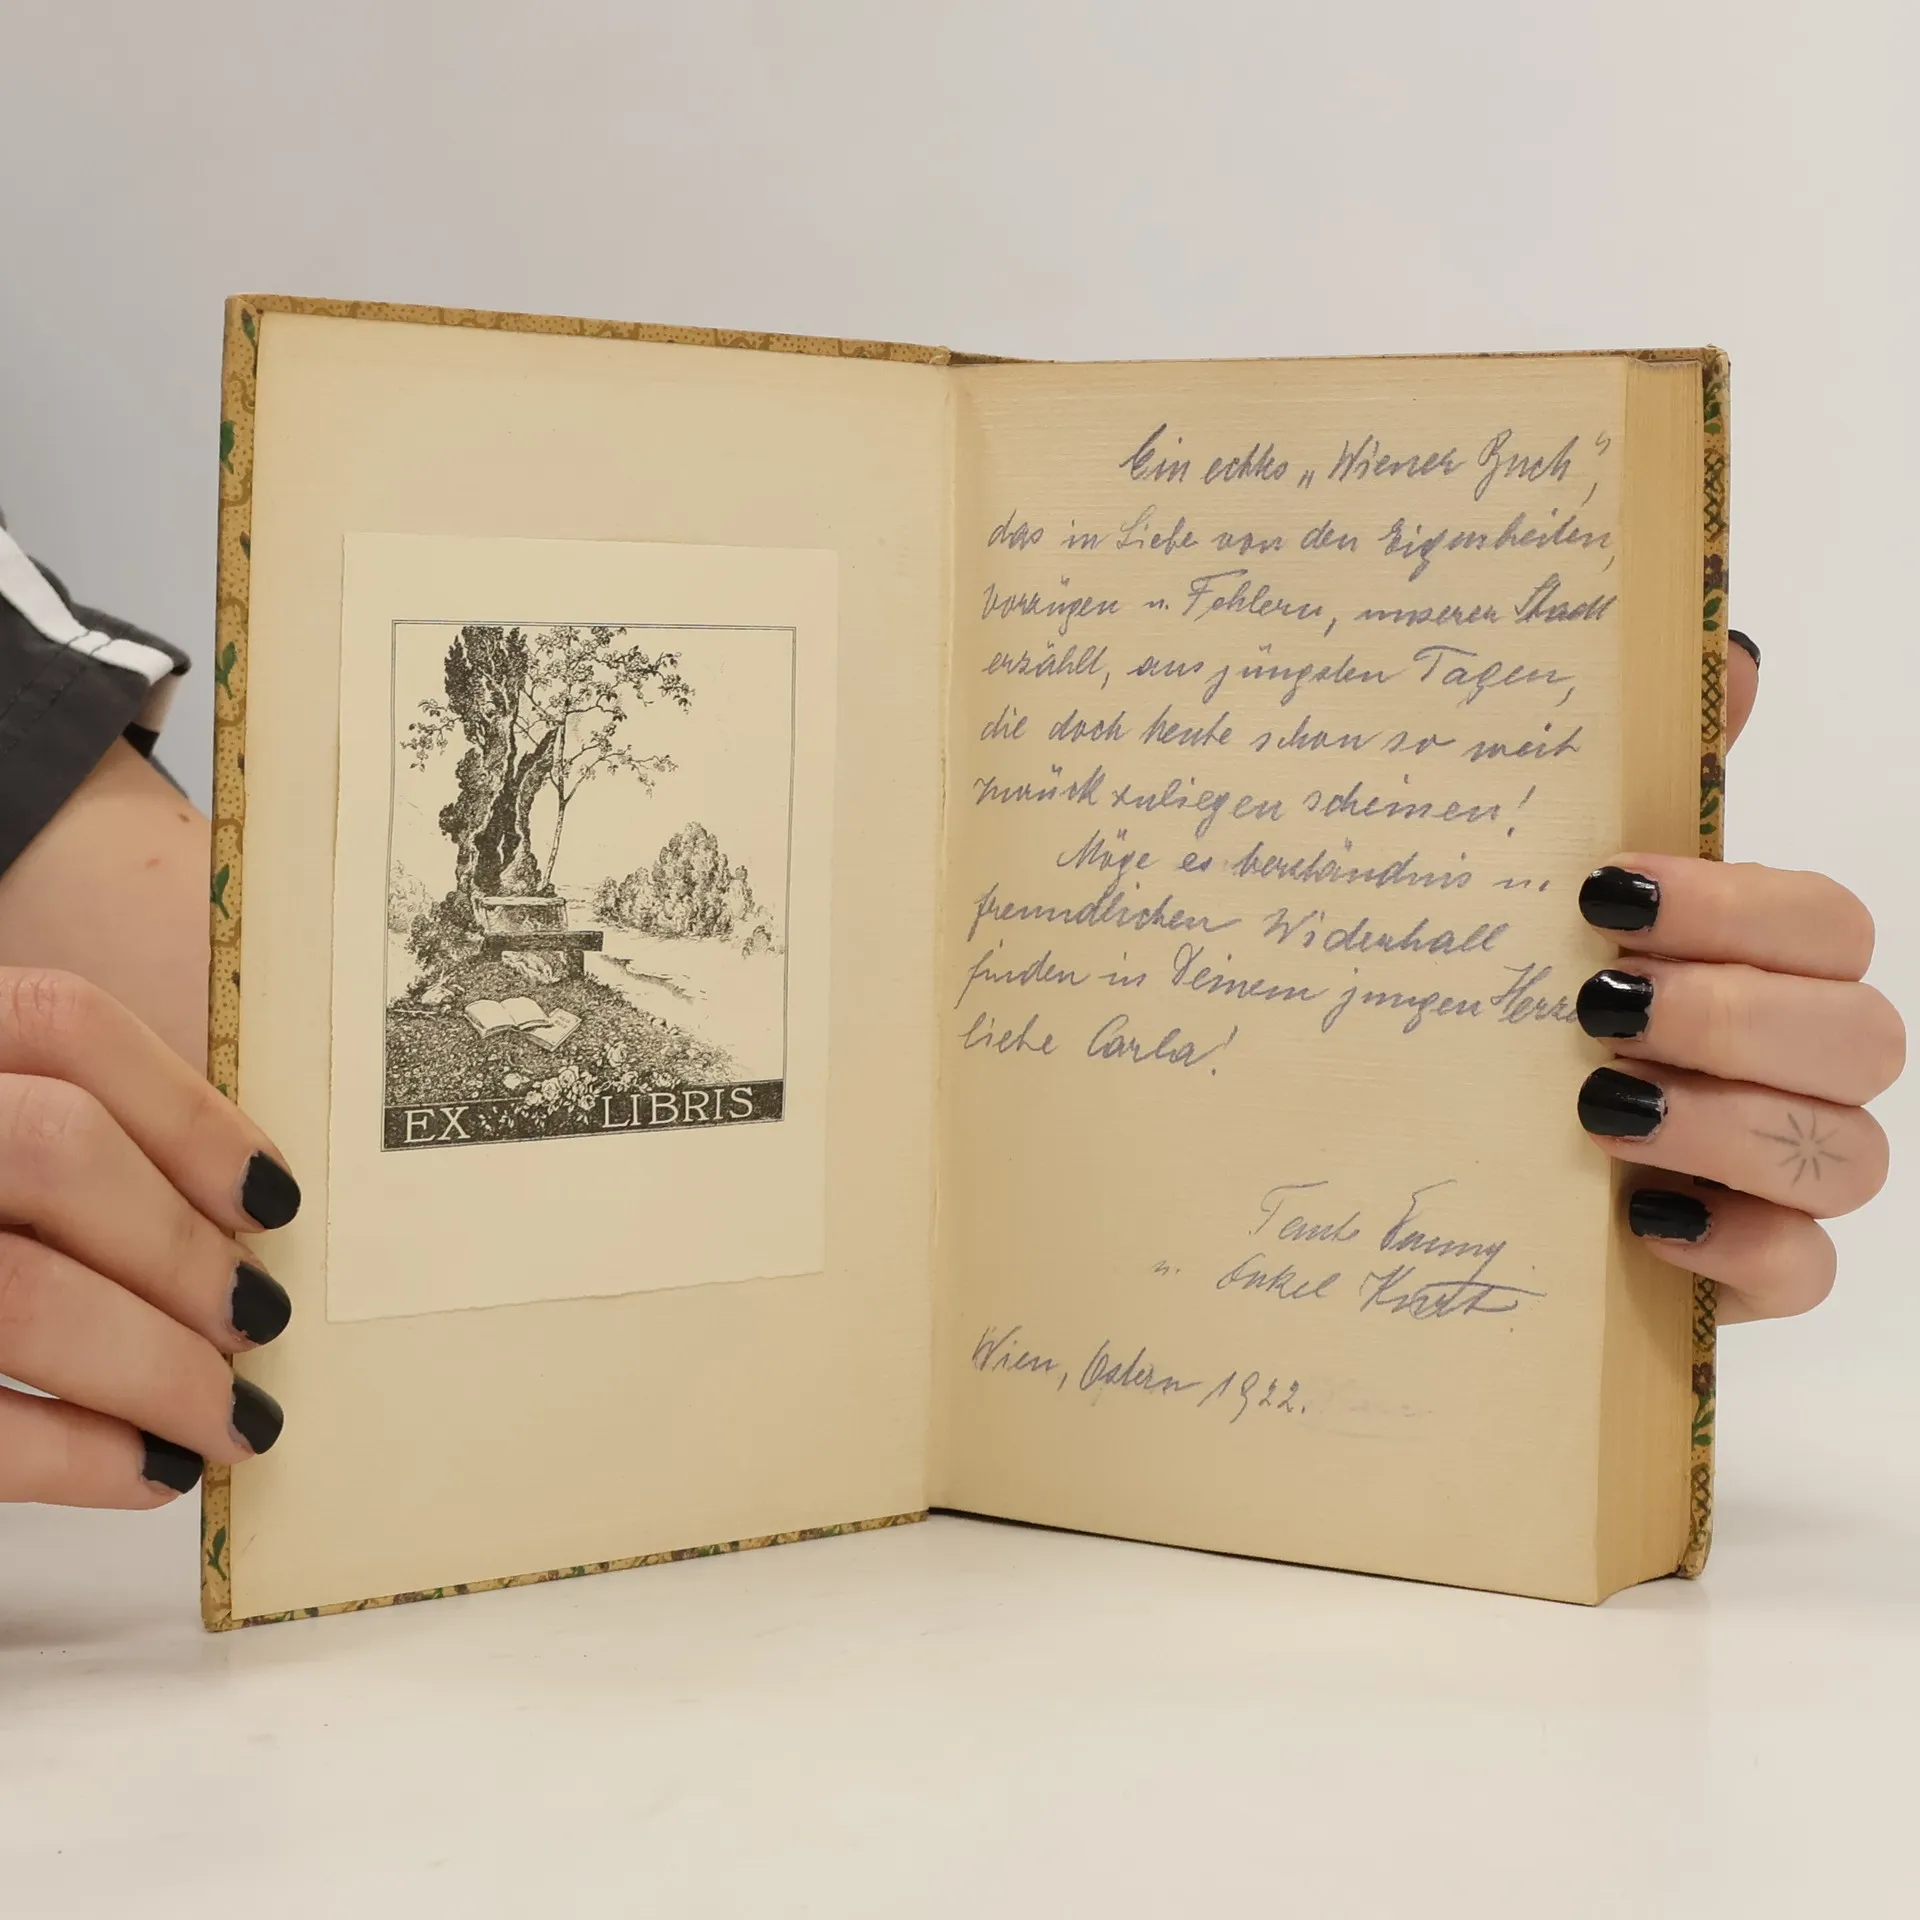 EX LIBRIS
Ein echtes „Wiener Buch“,
das in Liebe von den Eigenheiten,
Vorzügen u. Fehlern, unserer Stadt
erzählt, aus jüngsten Tagen,
die doch heute schon so weit
zurück zuliegen scheinen!
Möge es Verständnis u.
freundlichen Widerhall
finden in Deinem jungen
liebe Carla!
Tante Fanny
u. Onkel Kurt
Wien, Ostern 1922.